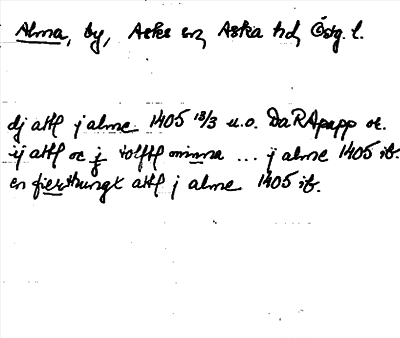 Alma, by, Aska sn, Aska hd, Östg. l.
dj attl j alme 1405 13/3 u.o. DaRApapp or.
ij attl oc j tolftl minna ... j alme 1405 ib.
en fierthungx attl j alme 1405 ib.